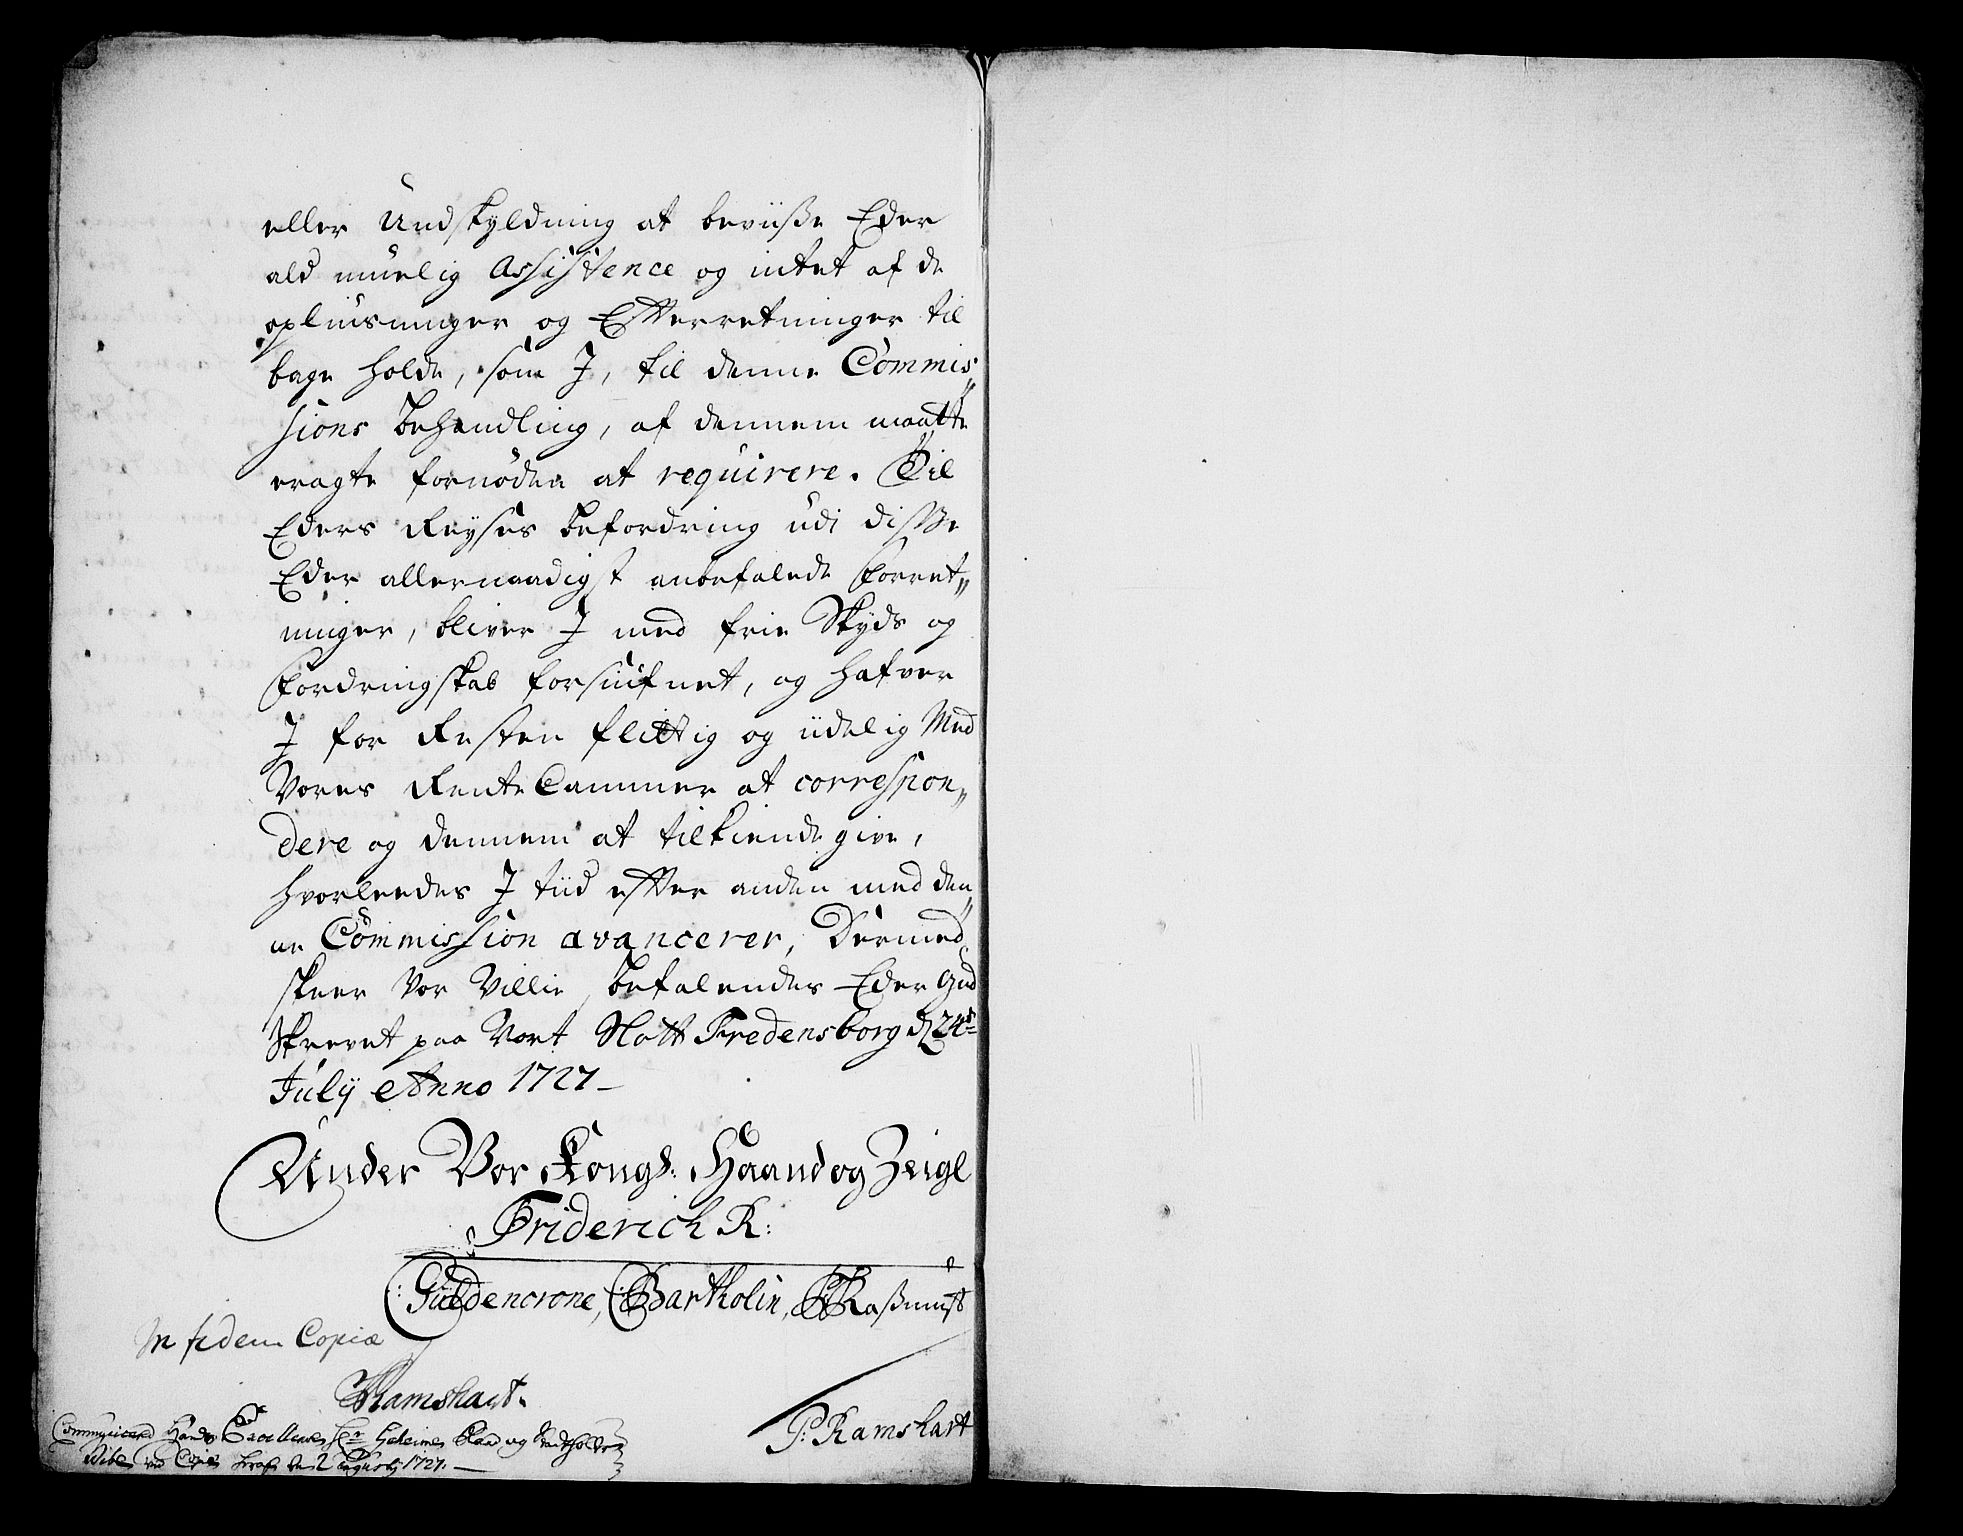 eller Undskyldning at beviiße Eder
ald muelig Assistence og intet af de
opliusninger og Efterretninger til
bage holde, som J, til denne Commis„
sions behandling, af dennem maatte
eragte fornøden at requirere. Til
Eders Reyses befordring udi diße
Eder allernaadigst anbefalede forret„
ninger, bliver J med frie Skyds og
fordringskab forsiufnet, og hafver
J for Resten flittig og iidelig Med
Vores Rente Cammer at correspon„
dere og dennem at tilkiende give,
hvorleedes J tiid efter anden med den„
ne Commission avancerer, Dermed
skeer Vor Villie, befalendes Eder Gud
Skrevet paa Vort Slott Fredensborg d 24de
July Anno 1727–
Under Vor Kongl: Haand og Zeigl
Friderich R:
Güldencrone, CBartholin, Raßmuß
In fidem Copiæ
PRamshart.
P: Ramshart
Communicerd Hands Excellence Hr Geheime Raad og Stadtholder
Vibe ved Copie heraf den 2 Augusty 1727.